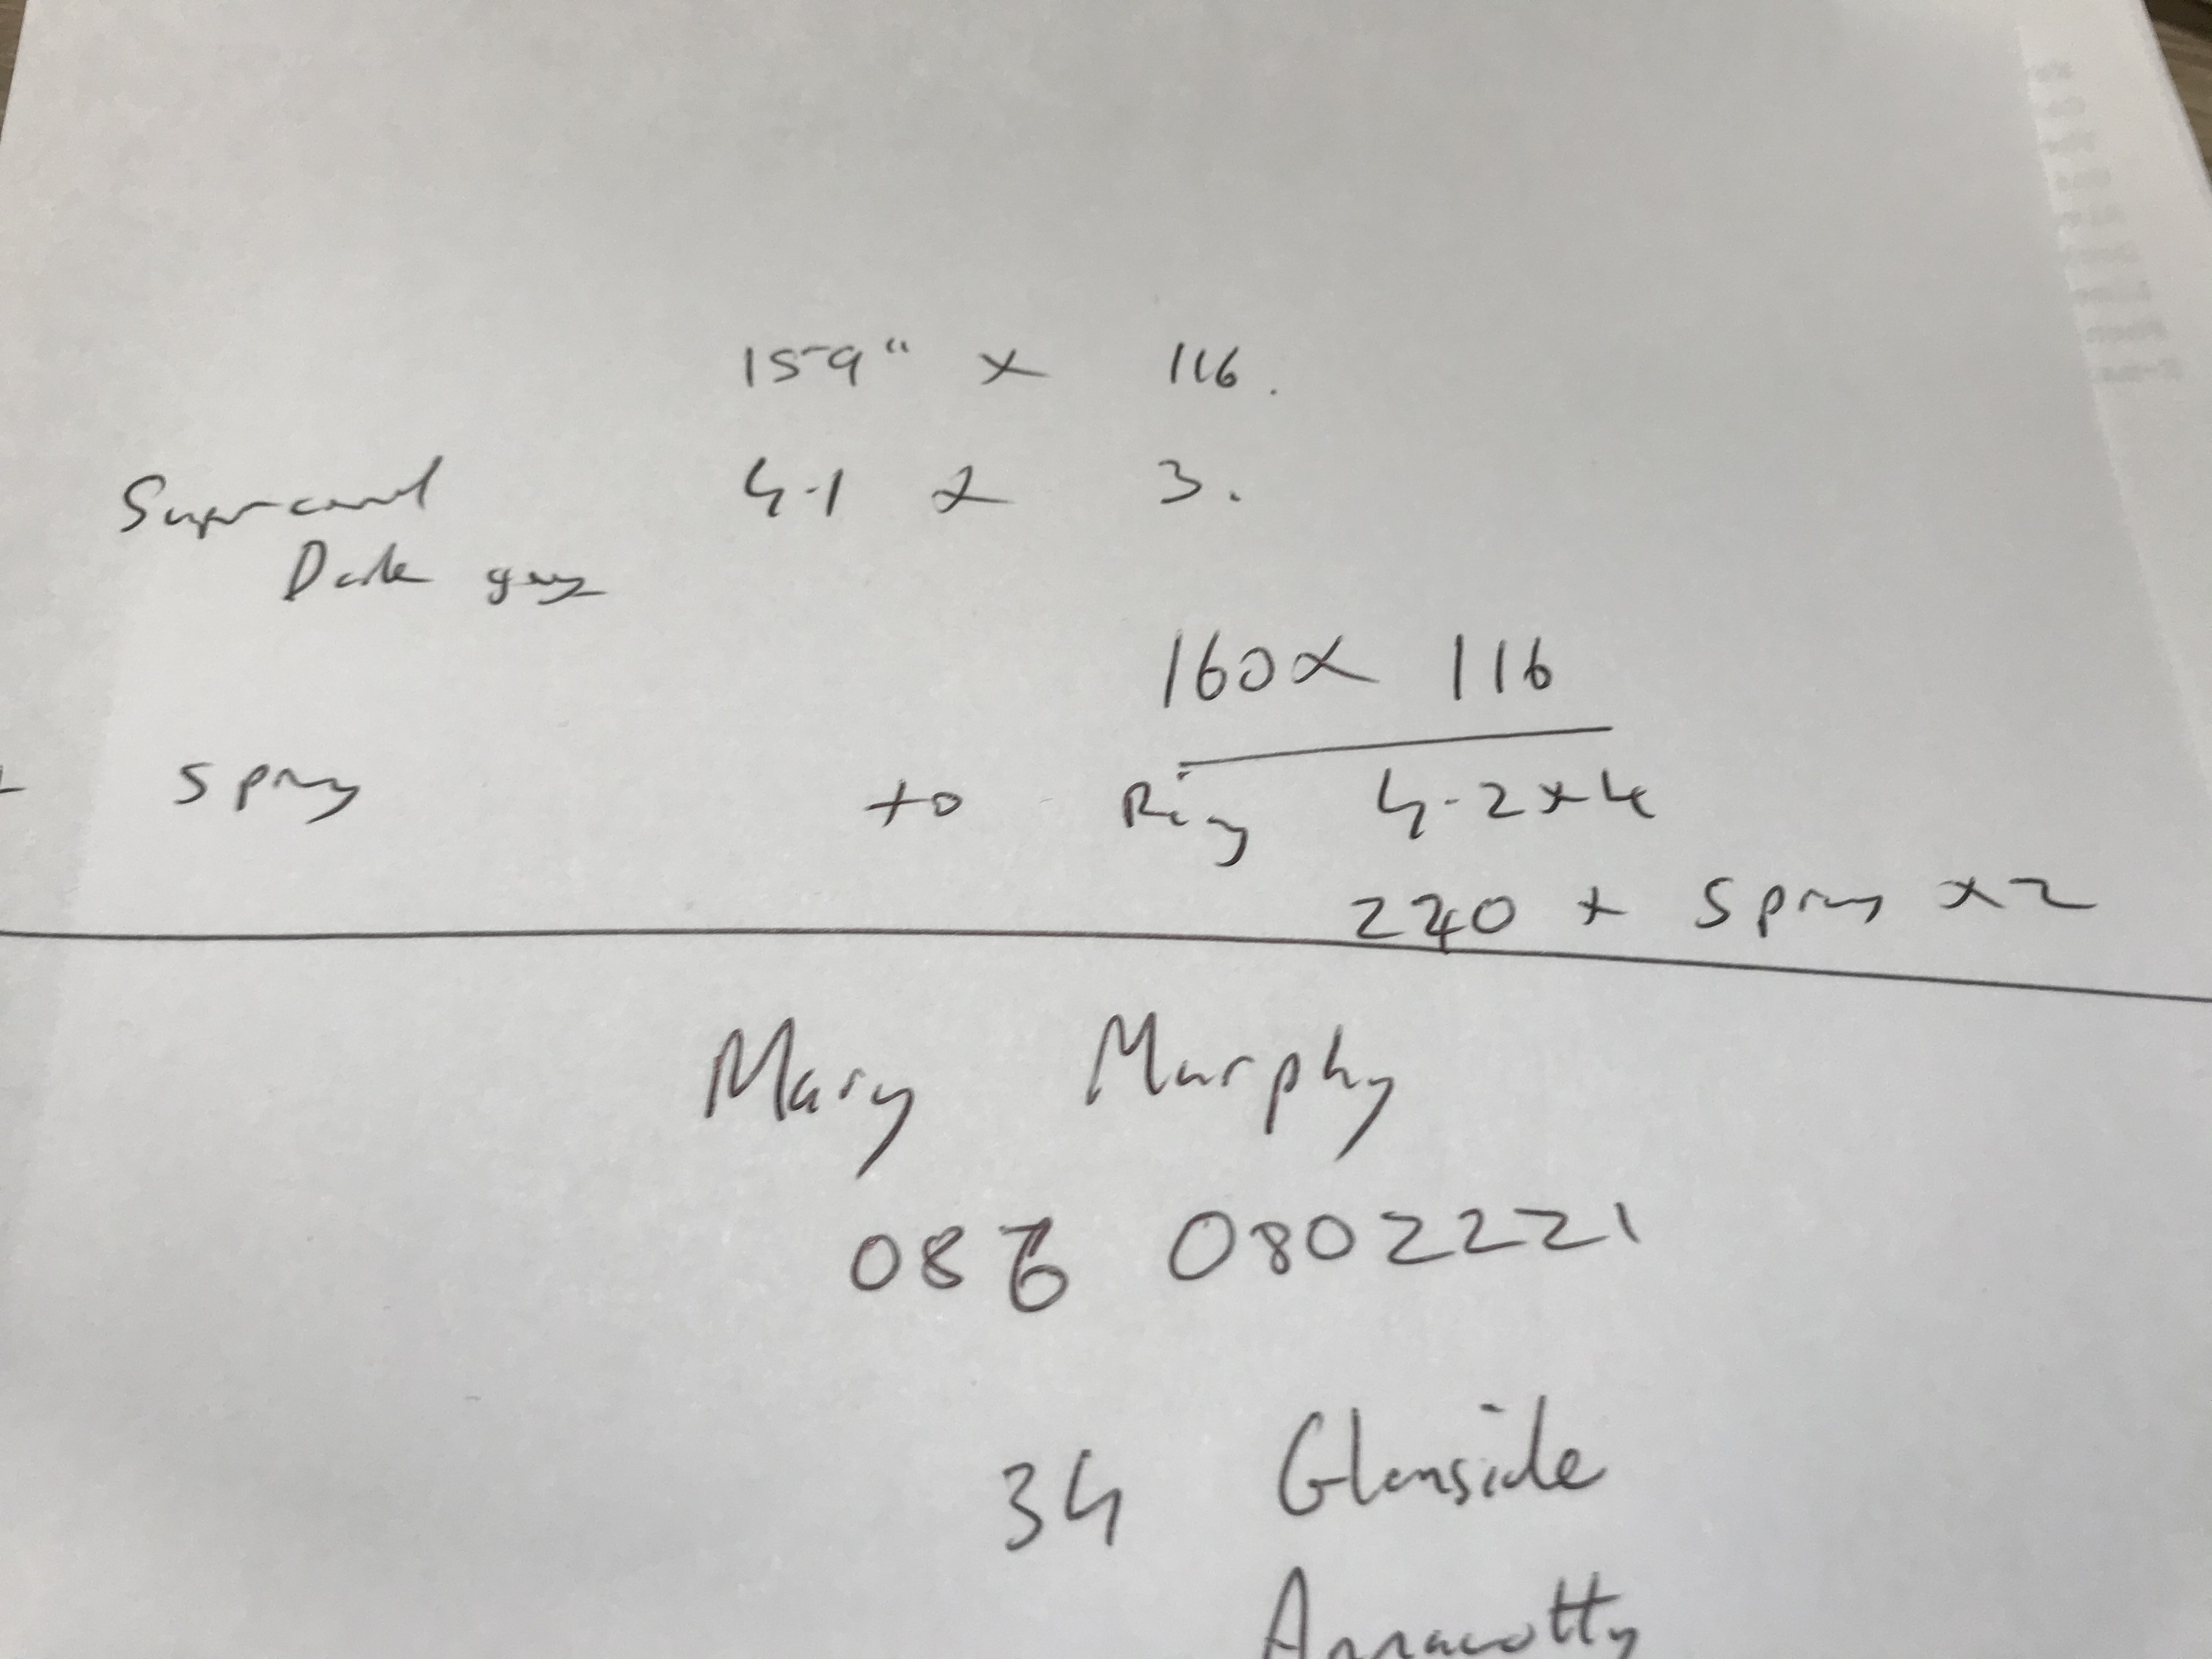 159" x 116.
4.1 x 3.
Dark grey
160 x 116
+ spray to Ring 4.2 x 4
220 + spray x 2
Mary Murphy
086 0802221
34 Glenside
Annacotty